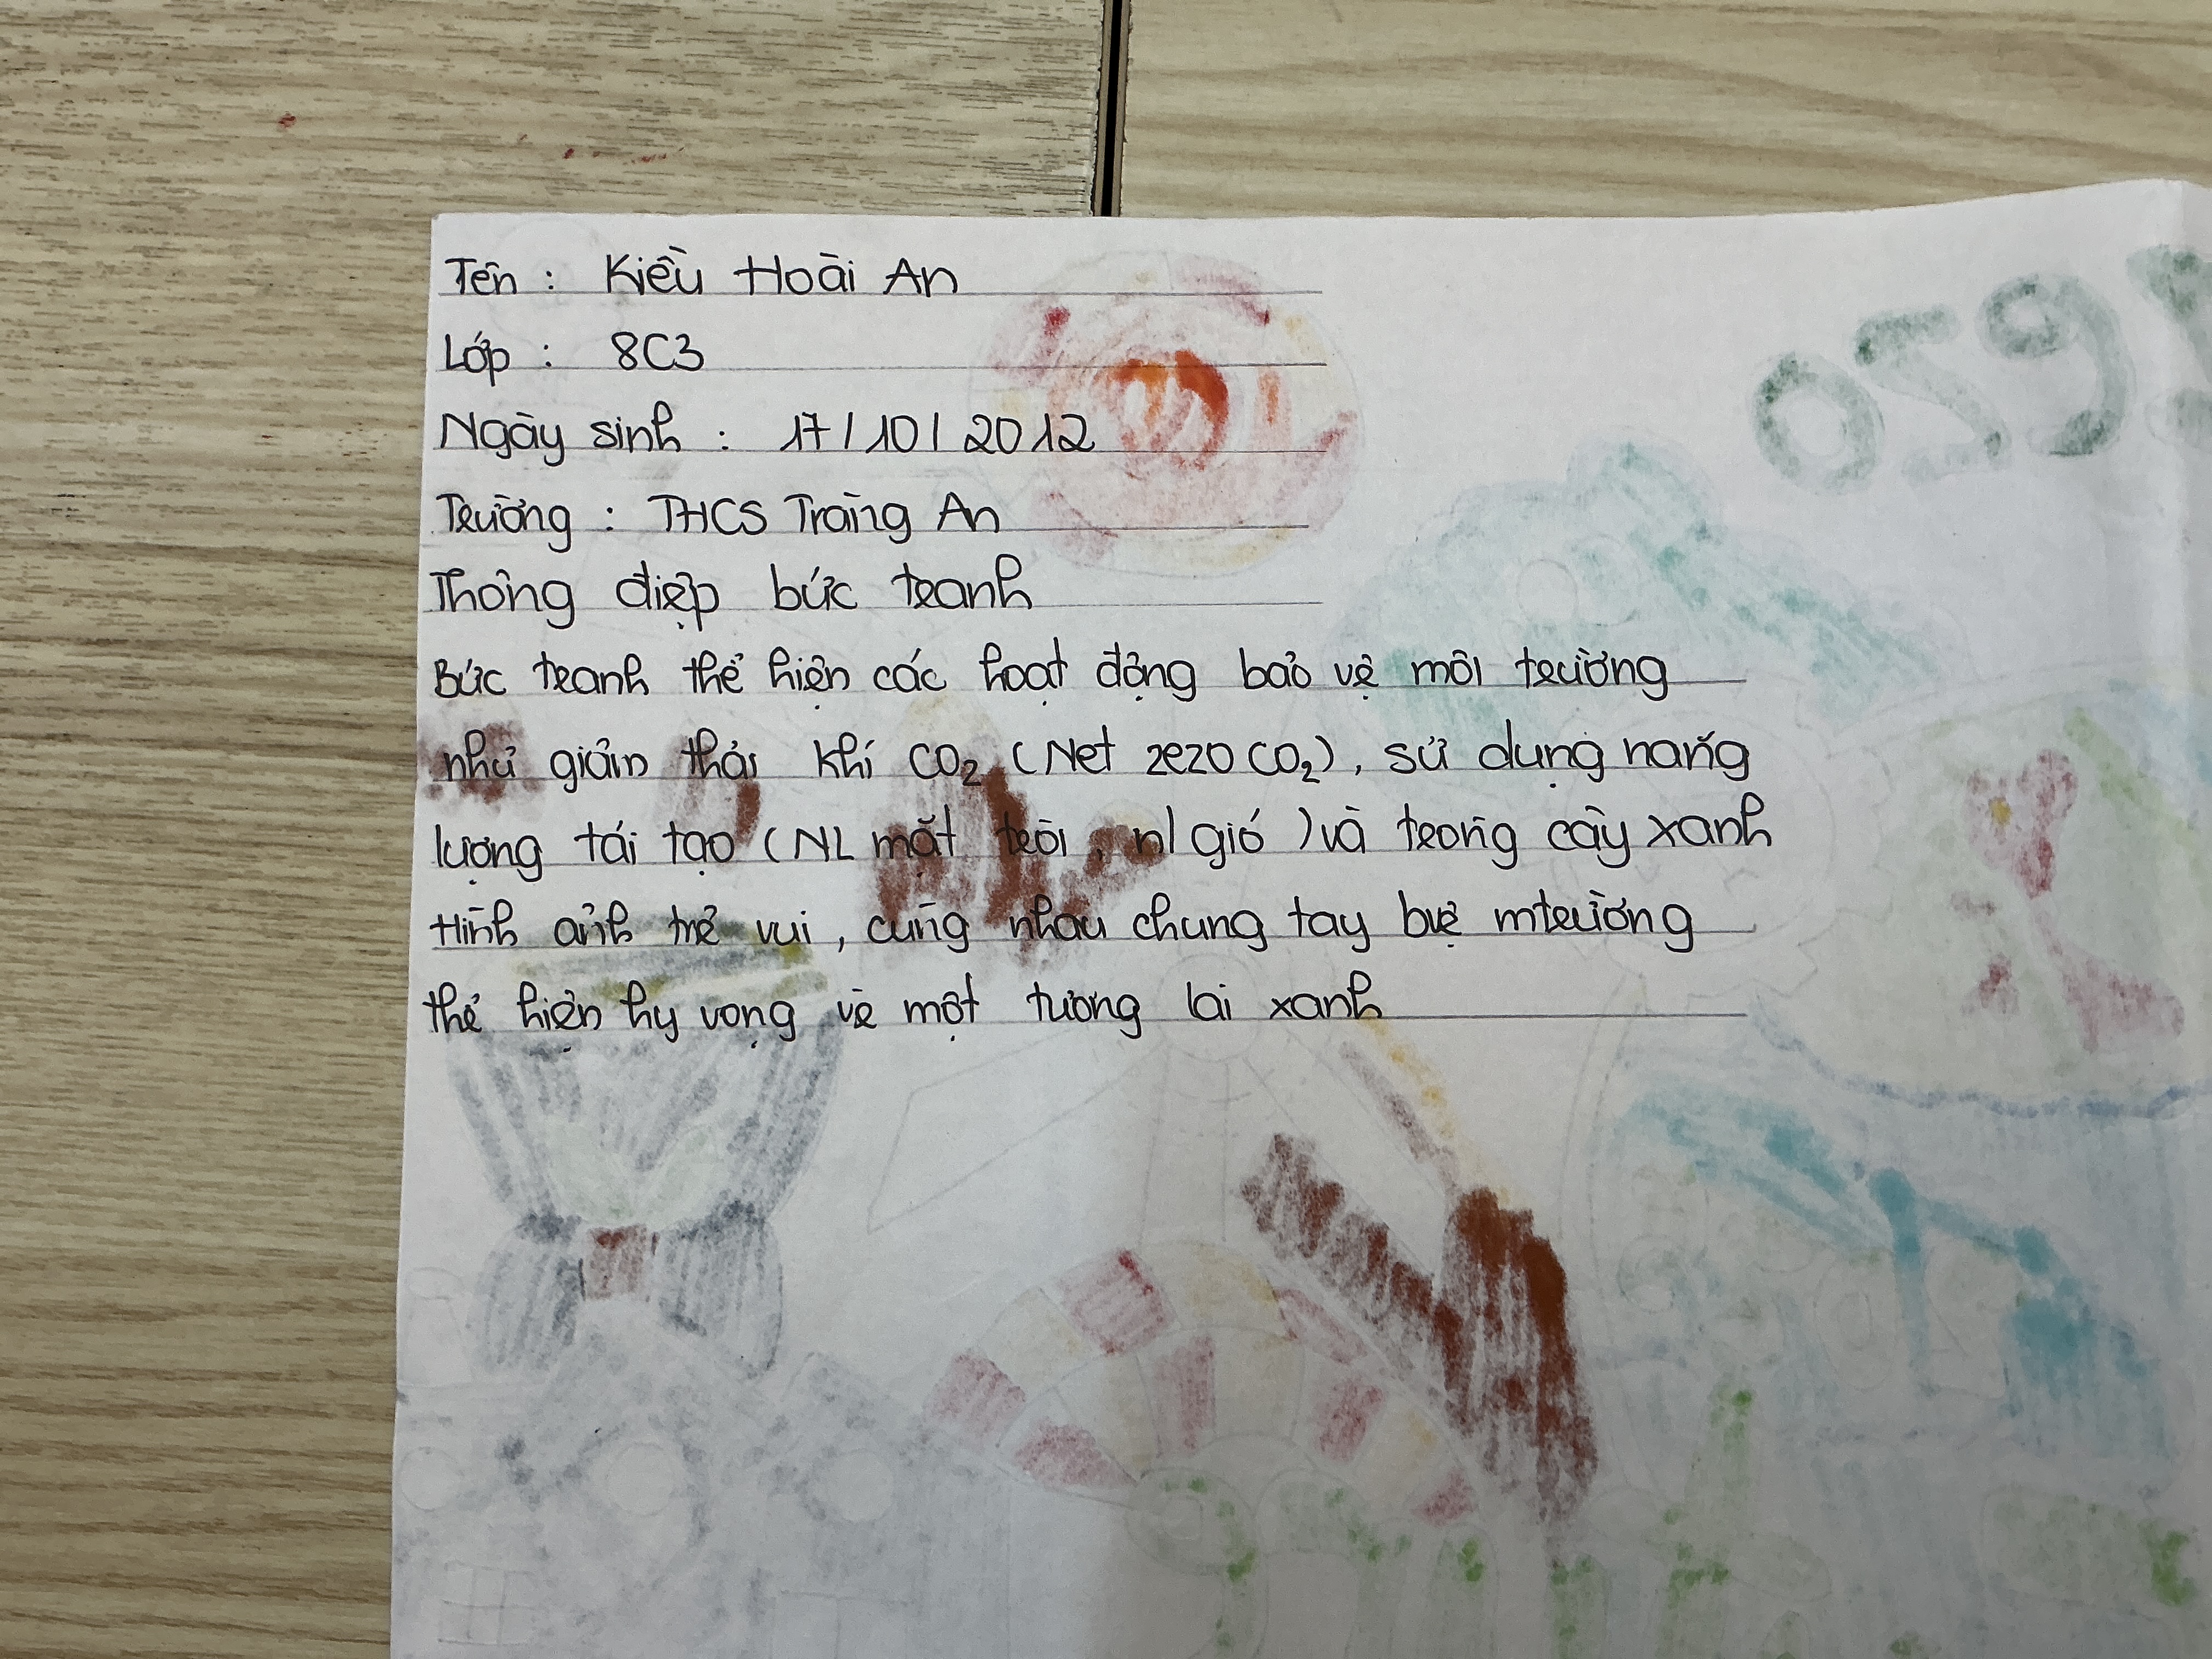 Tên : Kiều Hoài An
Lớp : 8C3
Ngày sinh : 17/10/2012
Trường : THCS Tràng An
Thông điệp bức tranh
Bức tranh thể hiện các hoạt động bảo vệ môi trường
như giảm thải khí CO₂ (Net zezo CO₂), sử dụng năng
lượng tái tạo (NL mặt trời, nl gió) và trồng cây xanh
Hình ảnh trẻ vui, cùng nhau chung tay bvệ mtrường
thể hiện hy vọng về một tương lai xanh